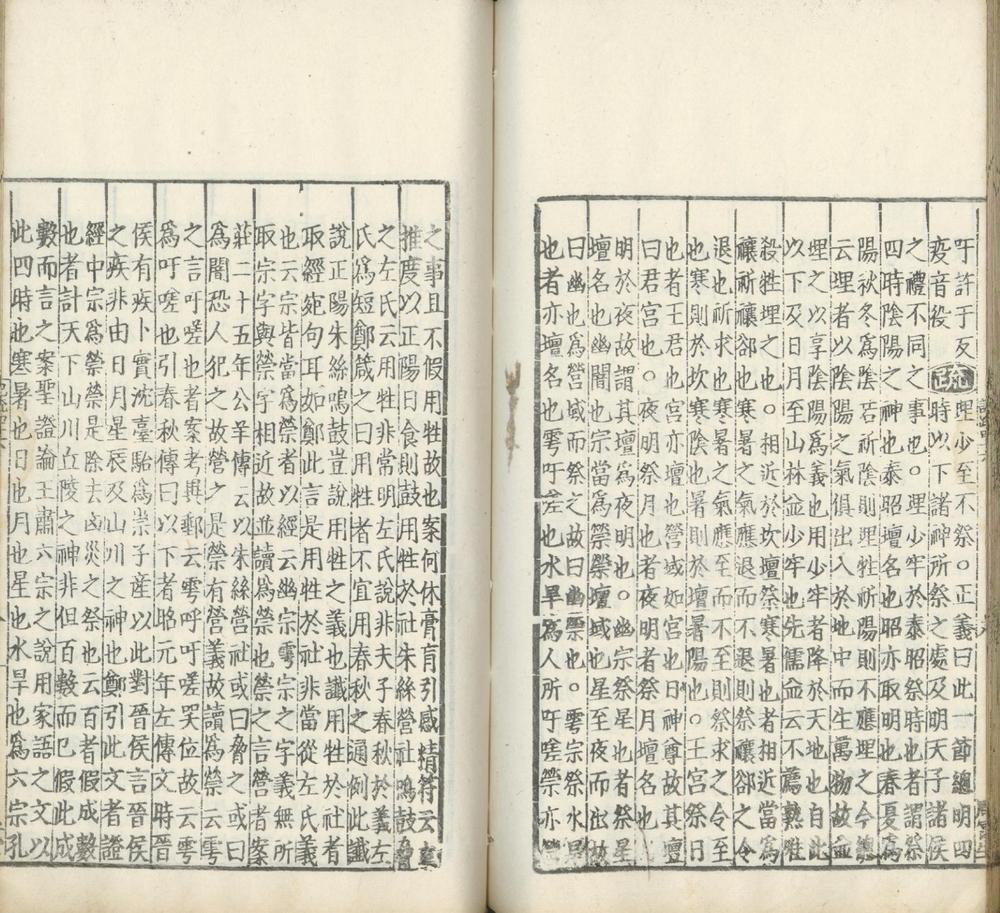 吁許于反
疫音役疏埋少至不祭。正義曰此一節緫明四
時以下諸神所祭之處及明天子諸侯
之禮不同之事也。埋少牢於泰昭祭時也者謂祭
四時陰陽之神也泰昭壇名也昭亦取明也春夏爲
陽秋冬爲陰若祈陰則埋牲祈陽則不應埋之今緫
云埋者以陰陽之氣俱出入於地中而生萬物故並
埋之以享陰陽爲義也用少牢者降於天地也自此
以下及日月至山林並少牢也先儒並云不薦熟唯
殺牲埋之也。相近於坎壇祭寒暑也者相近當爲
禳祈禳卻也寒暑之氣應退而不退則祭禳卻之令
退也祈求也寒暑之氣應至而不至則祭求之令至
也寒則於坎寒陰也暑則於壇暑陽也。王宮祭日
也者王君也宮亦壇也營域如宮也日神尊故其壇
曰君宮也。夜明祭月也者夜明者祭月壇名也
明於夜故謂其壇爲夜明也。幽宗祭星也者祭星
壇名也幽闇也宗當爲禜禜壇域也星至夜而出故
曰幽也爲營域而祭之故曰幽禜也。雩宗祭水旱
也者亦壇名也雩吁嗟也水旱爲人所吁嗟禜亦
之事且不假用牲故也案何休膏肓引感精符云
推度以正陽日食則鼓用牲於社朱絲營社鳴鼓脅
之左氏云用牲非常明左氏說非夫子春秋於義左
氏爲短鄭箴之曰用牲者不宜用春秋之通例此讖
說正陽朱絲鳴鼓豈說用牲之義也讖用牲於社者
取經宛句耳如鄭此言是用牲於社非當從左氏義
也云宗皆當爲禜者以經云幽宗雩宗之字義無所
取宗字與禜字相近故並讀爲禜也禜之言營者案
莊二十五年公羊傳云以朱絲營社或曰脅之或曰
爲闇恐人犯之故營之是禜有營義故讀爲禜云雩
之言吁嗟也者案考異郵云雩呼吁嗟哭位故云雩
爲吁嗟也引春秋傳曰以下者昭元年左傳文時晉
侯有疾卜實沈臺駘爲祟子產以此對晉侯言晉侯
之疾非由日月星辰及山川之神也鄭引此文者證
經中宗爲禜禜是除去凶災之祭也云百者假成數
也者計天下山川丘陵之神非但百數而已假此成
數而言之案聖證論王肅六宗之說用家語之文以
此四時也寒暑也日也月也星也水旱也爲六宗孔